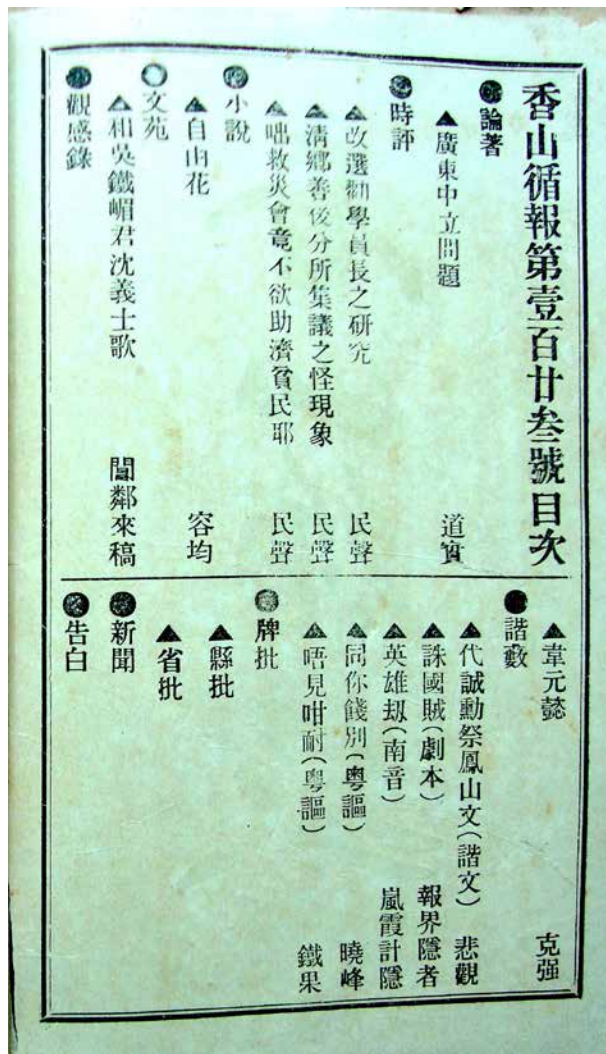 香山循報第壹百廿叁號目次
●論著
▲廣東中立問題 道實
●時評
▲改選勸學員長之研究 民聲
▲淸鄕善後分所集議之怪現象 民聲
▲咄救災會竟不欲助濟貧民耶 民聲
●小說
▲自由花 容均
●文苑
▲和吳鐵嵋君沈義士歌 閶鄰來稿
●觀感錄
▲韋元懿 克强
●諧藪
▲代誠勳祭鳳山文(諧文) 悲觀
▲誅國賊(劇本) 報界隱者
▲英雄刼(南音) 嵐霞計隱
▲同你餞別(粵謳) 曉峰
▲唔見咁耐(粵謳) 鐵果
●牌批
▲縣批
▲省批
●新聞
●告白